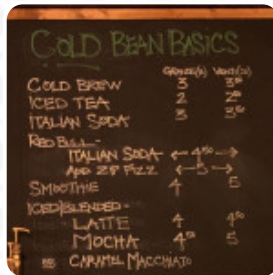 COLD BEAN BASICS
GRANDE(16) VENTI(24)
COLD BREW 3 3⁵⁰
ICED TEA 2 2⁵⁰
ITALIAN SODA 3 3⁵⁰
RED BULL -
ITALIAN SODA ← 4⁵⁰ →
ADD ZIP FIZZ ← 5 →
SMOOTHIE 4 5
ICED/BLENDED -
LATTE 4 4⁵⁰
MOCHA 4⁵⁰ 5
OR CARAMEL MACCHIATO